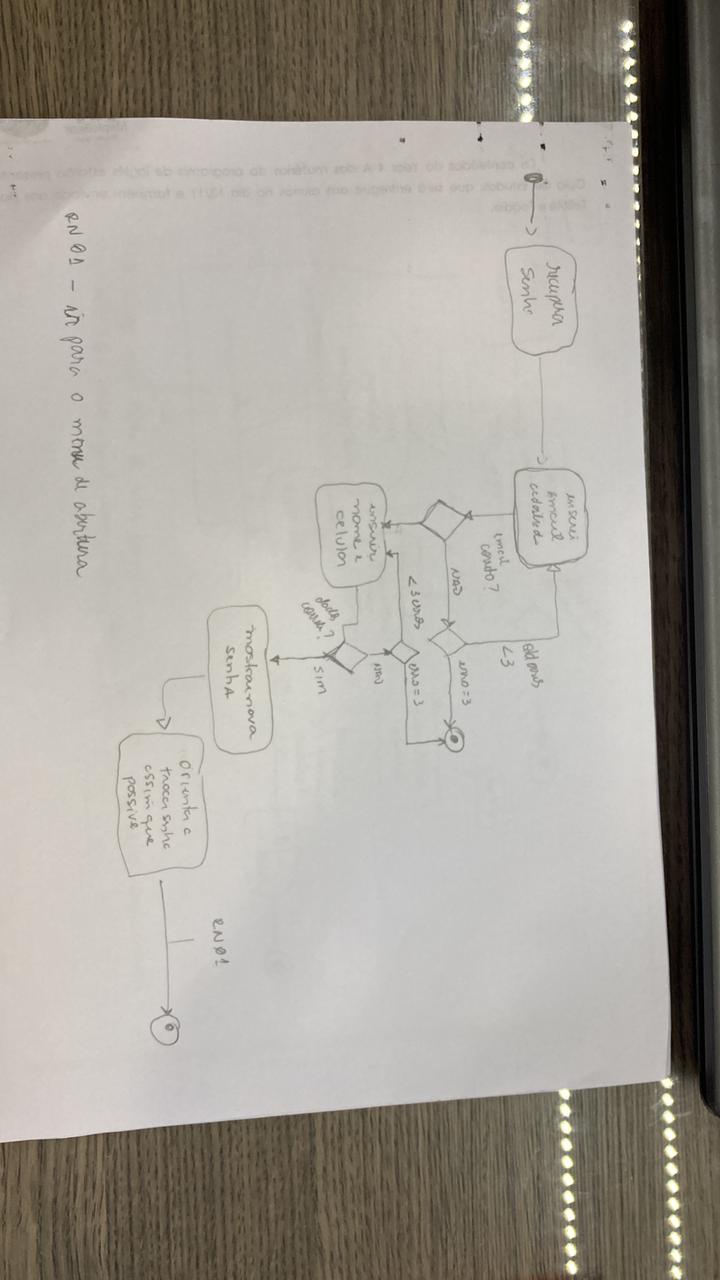 recupera
senha
inserir
email
cadastrado
email
correto?
NÃO
erro=3
<3
inserir
nome e
celular
<3 erros
erro=3
dados
corretos?
NÃO
SIM
mostrar nova
senha
orienta a
trocar senha
assim que
possive
RN01
RN01 - ir para o menu de abertura